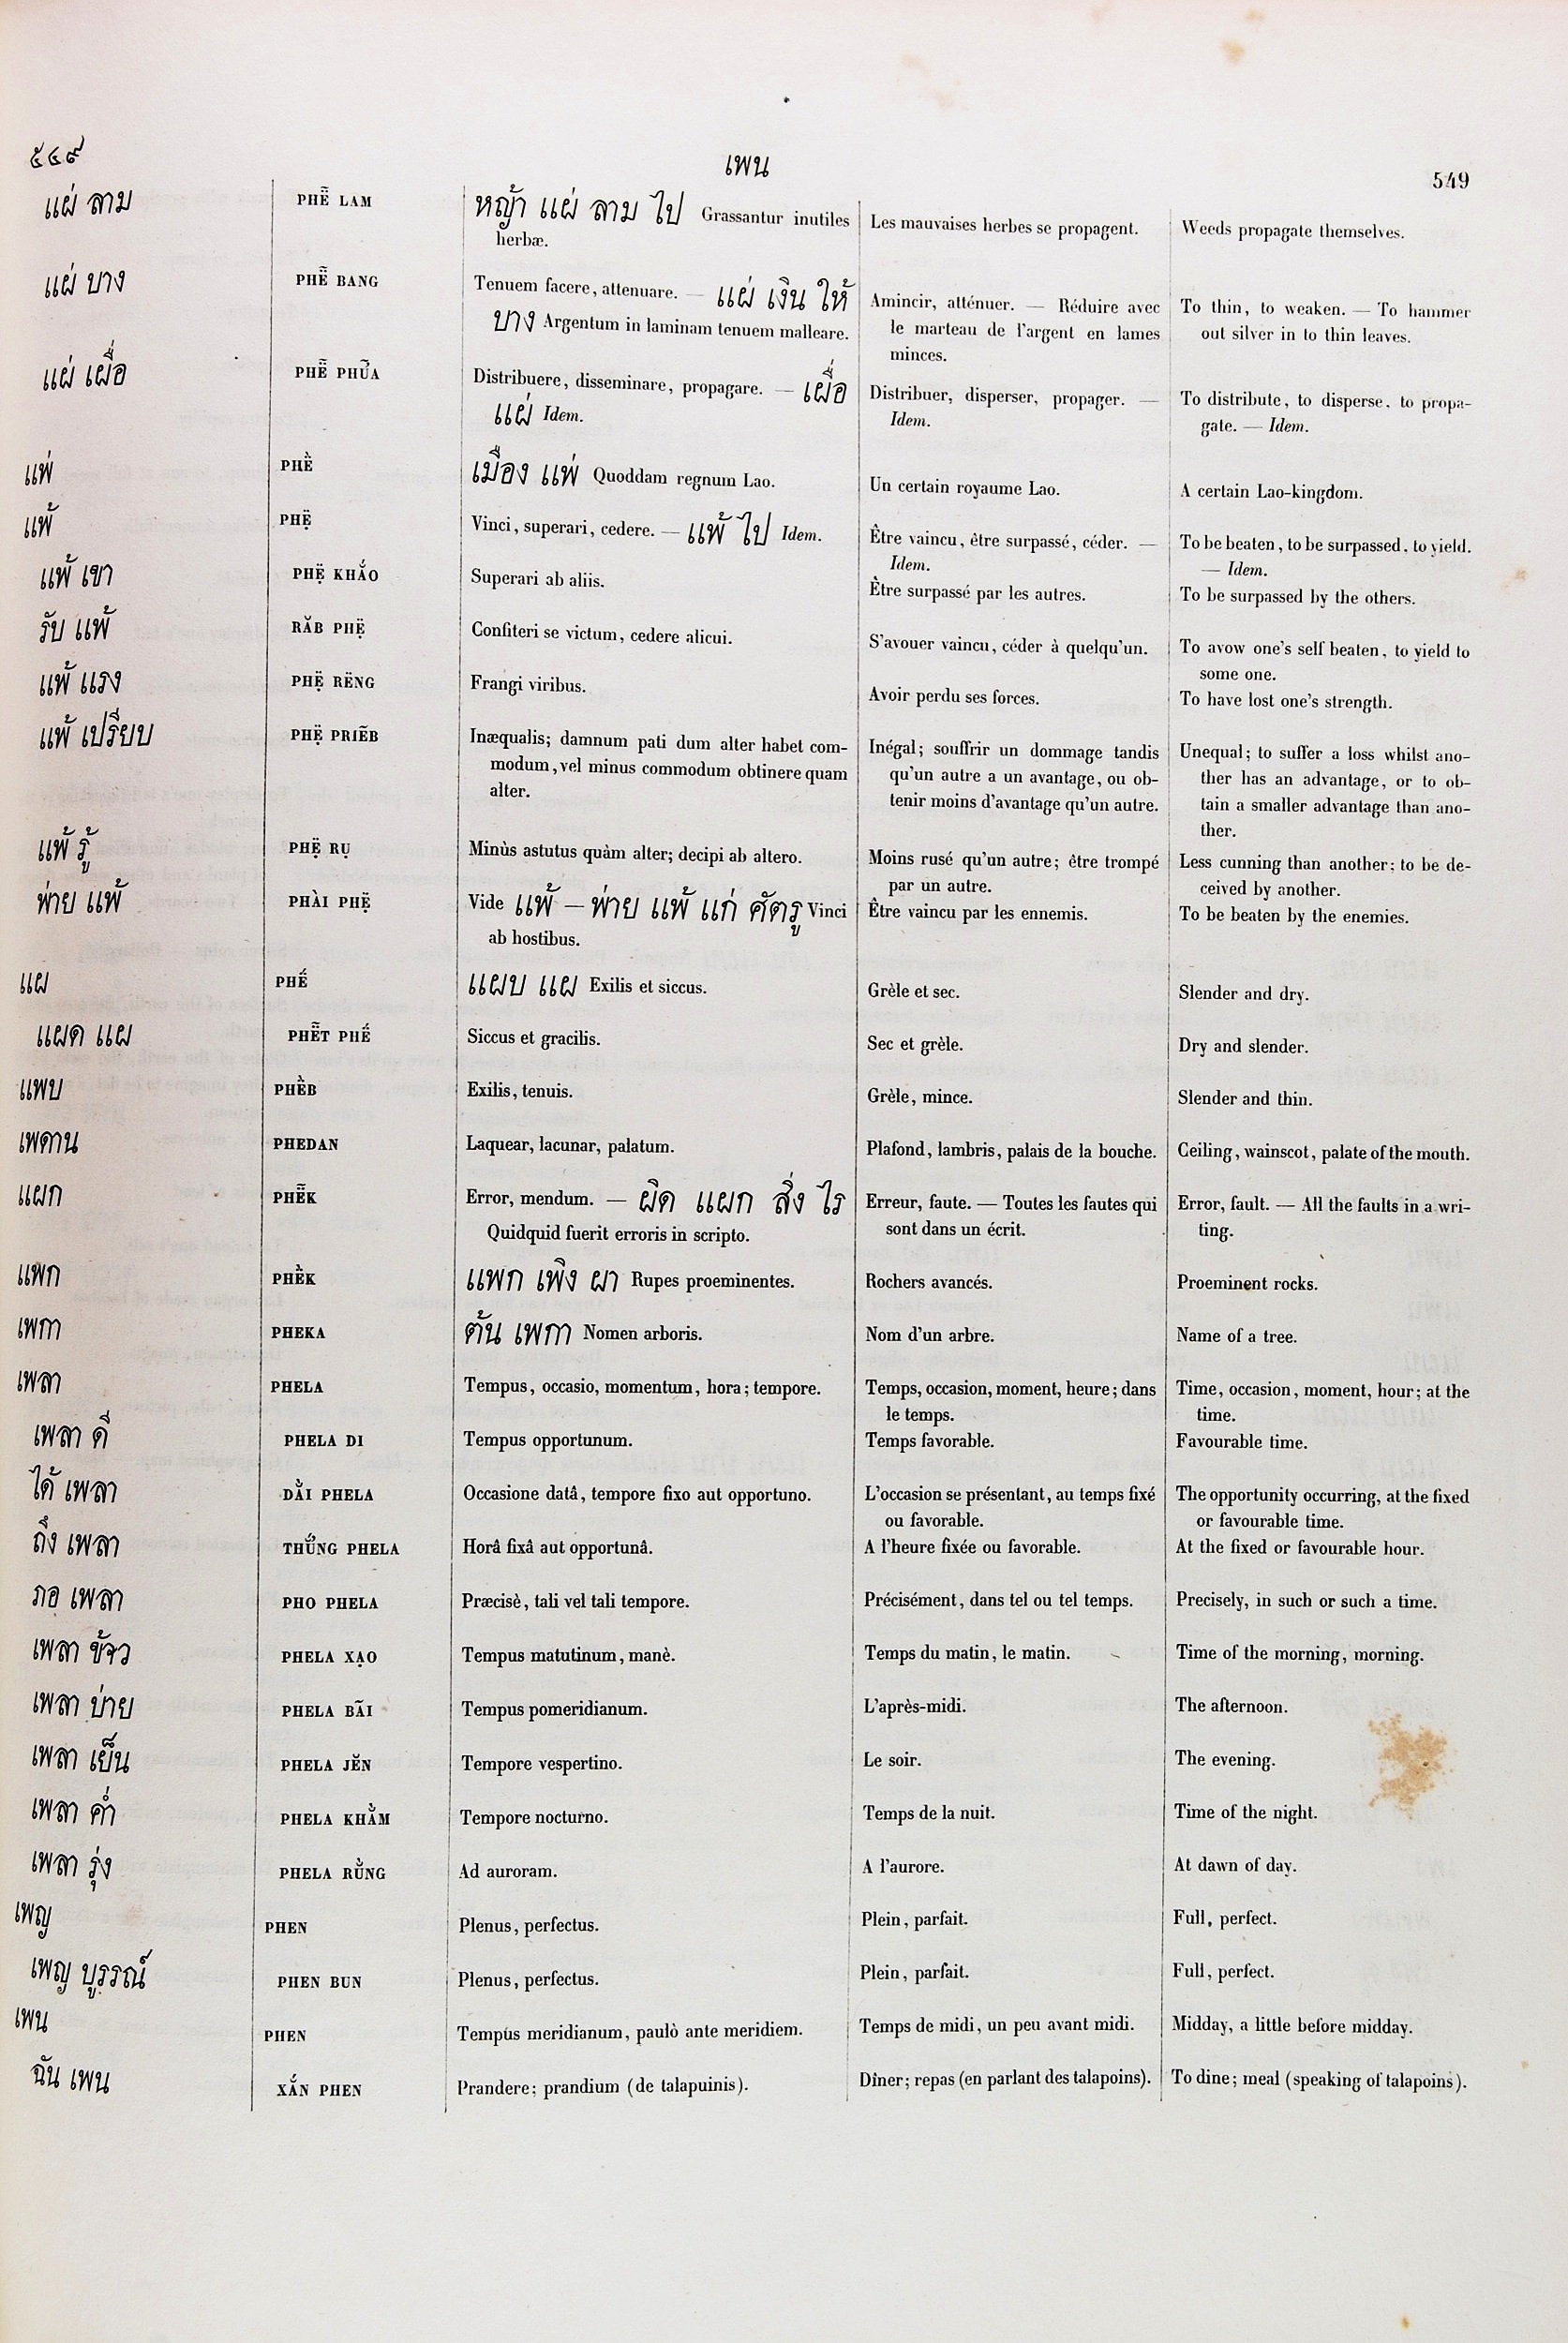 ๕๔๙ เพน 549
แผ่ ลาม PHẼ LAM หญ้า แผ่ ลาม ไป Grassantur inutiles Les mauvaises herbes se propagent. Weeds propagate themselves.
herbæ.
แผ่ บาง PHẼ BANG Tenuem facere, attenuare. — แผ่ เงิน ให้ Amincir, atténuer. — Réduire avec To thin, to weaken. — To hammer
บาง Argentum in laminam tenuem malleare. le marteau de l'argent en lames out silver in to thin leaves.
minces.
แผ่ เผื่อ PHẼ PHŨA Distribuere, disseminare, propagare. — เผื่อ Distribuer, disperser, propager. — To distribute, to disperse, to propa-
แผ่ Idem. Idem. gate. — Idem.
แพ่ PHÈ เมือง แพ่ Quoddam regnum Lao. Un certain royaume Lao. A certain Lao-kingdom.
แพ้ PHẸ̈ Vinci, superari, cedere. — แพ้ ไป Idem. Être vaincu, être surpassé, céder. — To be beaten, to be surpassed, to yield.
Idem. — Idem.
แพ้ เขา PHẸ̈ KHẮO Superari ab aliis. Être surpassé par les autres. To be surpassed by the others.
รับ แพ้ RĂB PHẸ̈ Confiteri se victum, cedere alicui. S'avouer vaincu, céder à quelqu'un. To avow one's self beaten, to yield to
some one.
แพ้ แรง PHẸ̈ RËNG Frangi viribus. Avoir perdu ses forces. To have lost one's strength.
แพ้ เปรียบ PHẸ̈ PRIẼB Inæqualis; damnum pati dum alter habet com- Inégal; souffrir un dommage tandis Unequal; to suffer a loss whilst ano-
modum, vel minus commodum obtinere quam qu'un autre a un avantage, ou ob- ther has an advantage, or to ob-
alter. tenir moins d'avantage qu'un autre. tain a smaller advantage than ano-
ther.
แพ้ รู้ PHẸ̈ RỤ Minùs astutus quàm alter; decipi ab altero. Moins rusé qu'un autre; être trompé Less cunning than another; to be de-
par un autre. ceived by another.
พ่าย แพ้ PHÀI PHẸ̈ Vide แพ้ — พ่าย แพ้ แก่ ศัตรู Vinci Être vaincu par les ennemis. To be beaten by the enemies.
ab hostibus.
แผ PHẾ แผบ แผ Exilis et siccus. Grèle et sec. Slender and dry.
แผด แผ PHẼT PHẾ Siccus et gracilis. Sec et grèle. Dry and slender.
แพบ PHÈB Exilis, tenuis. Grèle, mince. Slender and thin.
เพดาน PHEDAN Laquear, lacunar, palatum. Plafond, lambris, palais de la bouche. Ceiling, wainscot, palate of the mouth.
แผก PHẼK Error, mendum. — ผิด แผก สิ่ง ไร Erreur, faute. — Toutes les fautes qui Error, fault. — All the faults in a wri-
Quidquid fuerit erroris in scripto. sont dans un écrit. ting.
แพก PHÈK แพก เพิง ผา Rupes proeminentes. Rochers avancés. Proeminent rocks.
เพกา PHEKA ต้น เพกา Nomen arboris. Nom d'un arbre. Name of a tree.
เพลา PHELA Tempus, occasio, momentum, hora; tempore. Temps, occasion, moment, heure; dans Time, occasion, moment, hour; at the
le temps. time.
เพลา ดี PHELA DI Tempus opportunum. Temps favorable. Favourable time.
ได้ เพลา DẰI PHELA Occasione datâ, tempore fixo aut opportuno. L'occasion se présentant, au temps fixé The opportunity occurring, at the fixed
ou favorable. or favourable time.
ถึง เพลา THỨNG PHELA Horâ fixâ aut opportunâ. A l'heure fixée ou favorable. At the fixed or favourable hour.
ภอ เพลา PHO PHELA Præcisè, tali vel tali tempore. Précisément, dans tel ou tel temps. Precisely, in such or such a time.
เพลา ช้าว PHELA XẠO Tempus matutinum, manè. Temps du matin, le matin. Time of the morning, morning.
เพลา บ่าย PHELA BÃI Tempus pomeridianum. L'après-midi. The afternoon.
เพลา เย็น PHELA JĔN Tempore vespertino. Le soir. The evening.
เพลา ค่ำ PHELA KHẰM Tempore nocturno. Temps de la nuit. Time of the night.
เพลา รุ่ง PHELA RŬ̀NG Ad auroram. A l'aurore. At dawn of day.
เพญ PHEN Plenus, perfectus. Plein, parfait. Full, perfect.
เพญ บูรรณ์ PHEN BUN Plenus, perfectus. Plein, parfait. Full, perfect.
เพน PHEN Tempus meridianum, paulò ante meridiem. Temps de midi, un peu avant midi. Midday, a little before midday.
ฉัน เพน XẮN PHEN Prandere; prandium (de talapuinis). Dîner; repas (en parlant des talapoins). To dine; meal (speaking of talapoins).